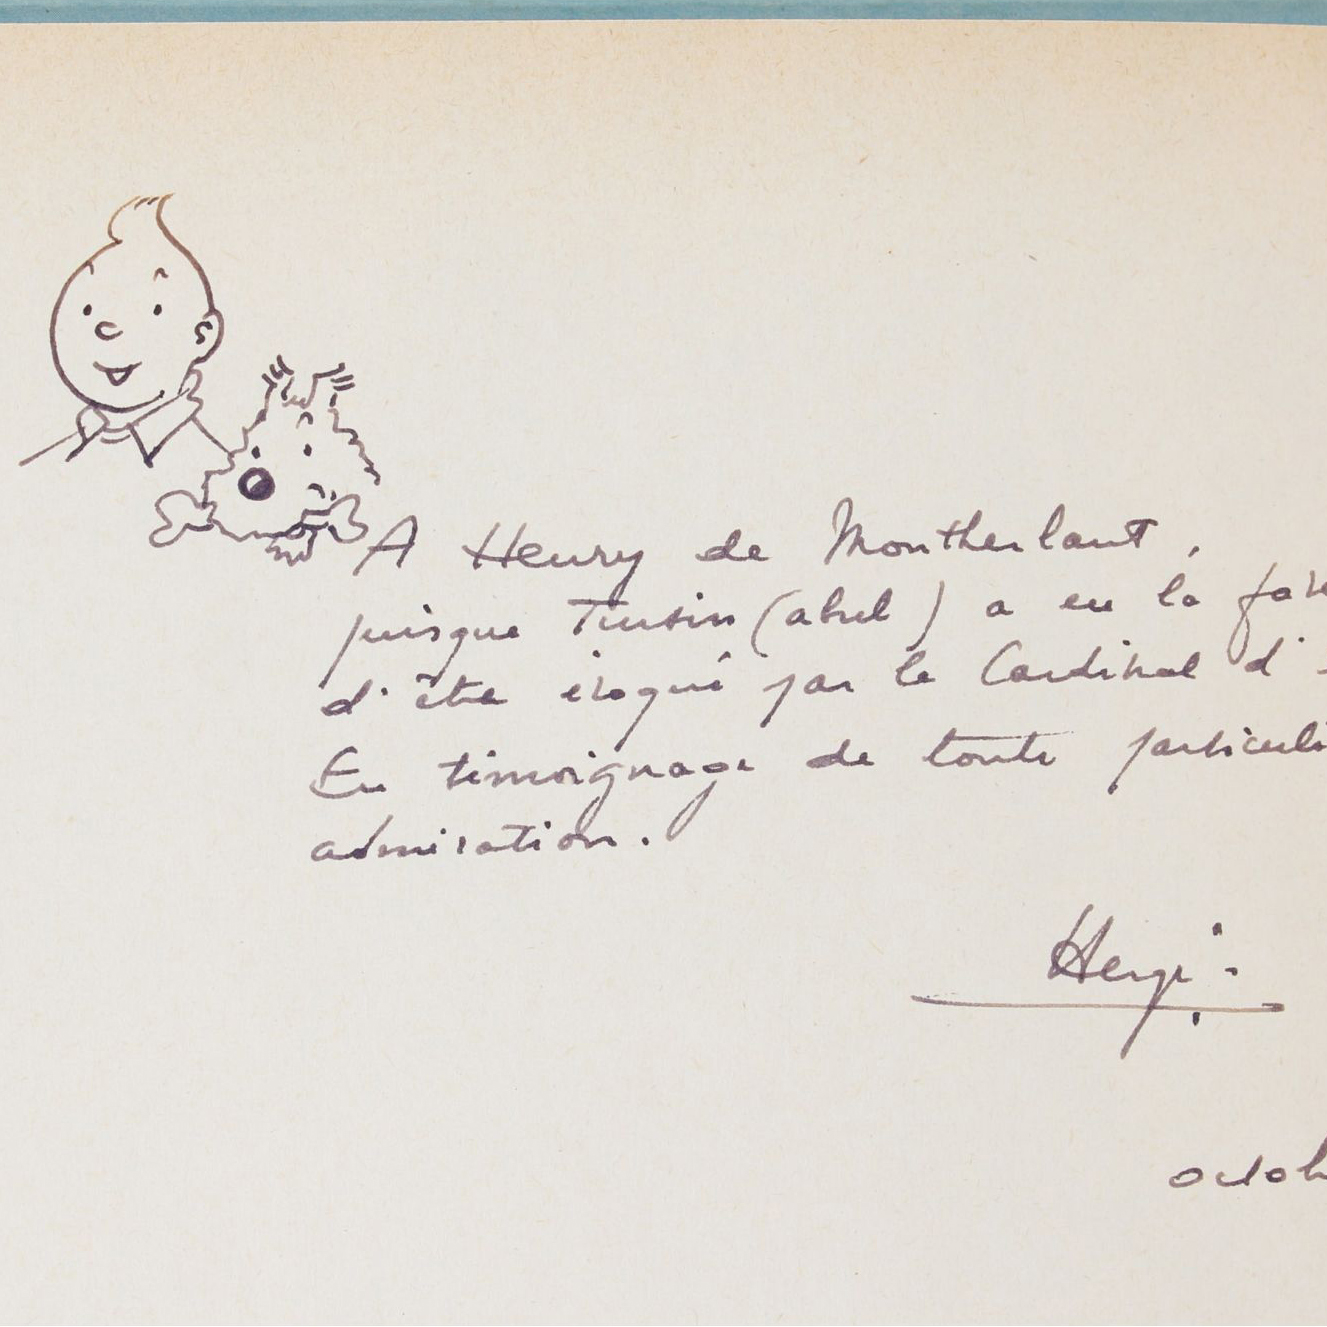 A Henry de Montherlant,
puisque Tintin a eu la fav
d'être évoqué par le Cardinal d'
En témoignage de toute particuli
admiration.
Hergé
octob